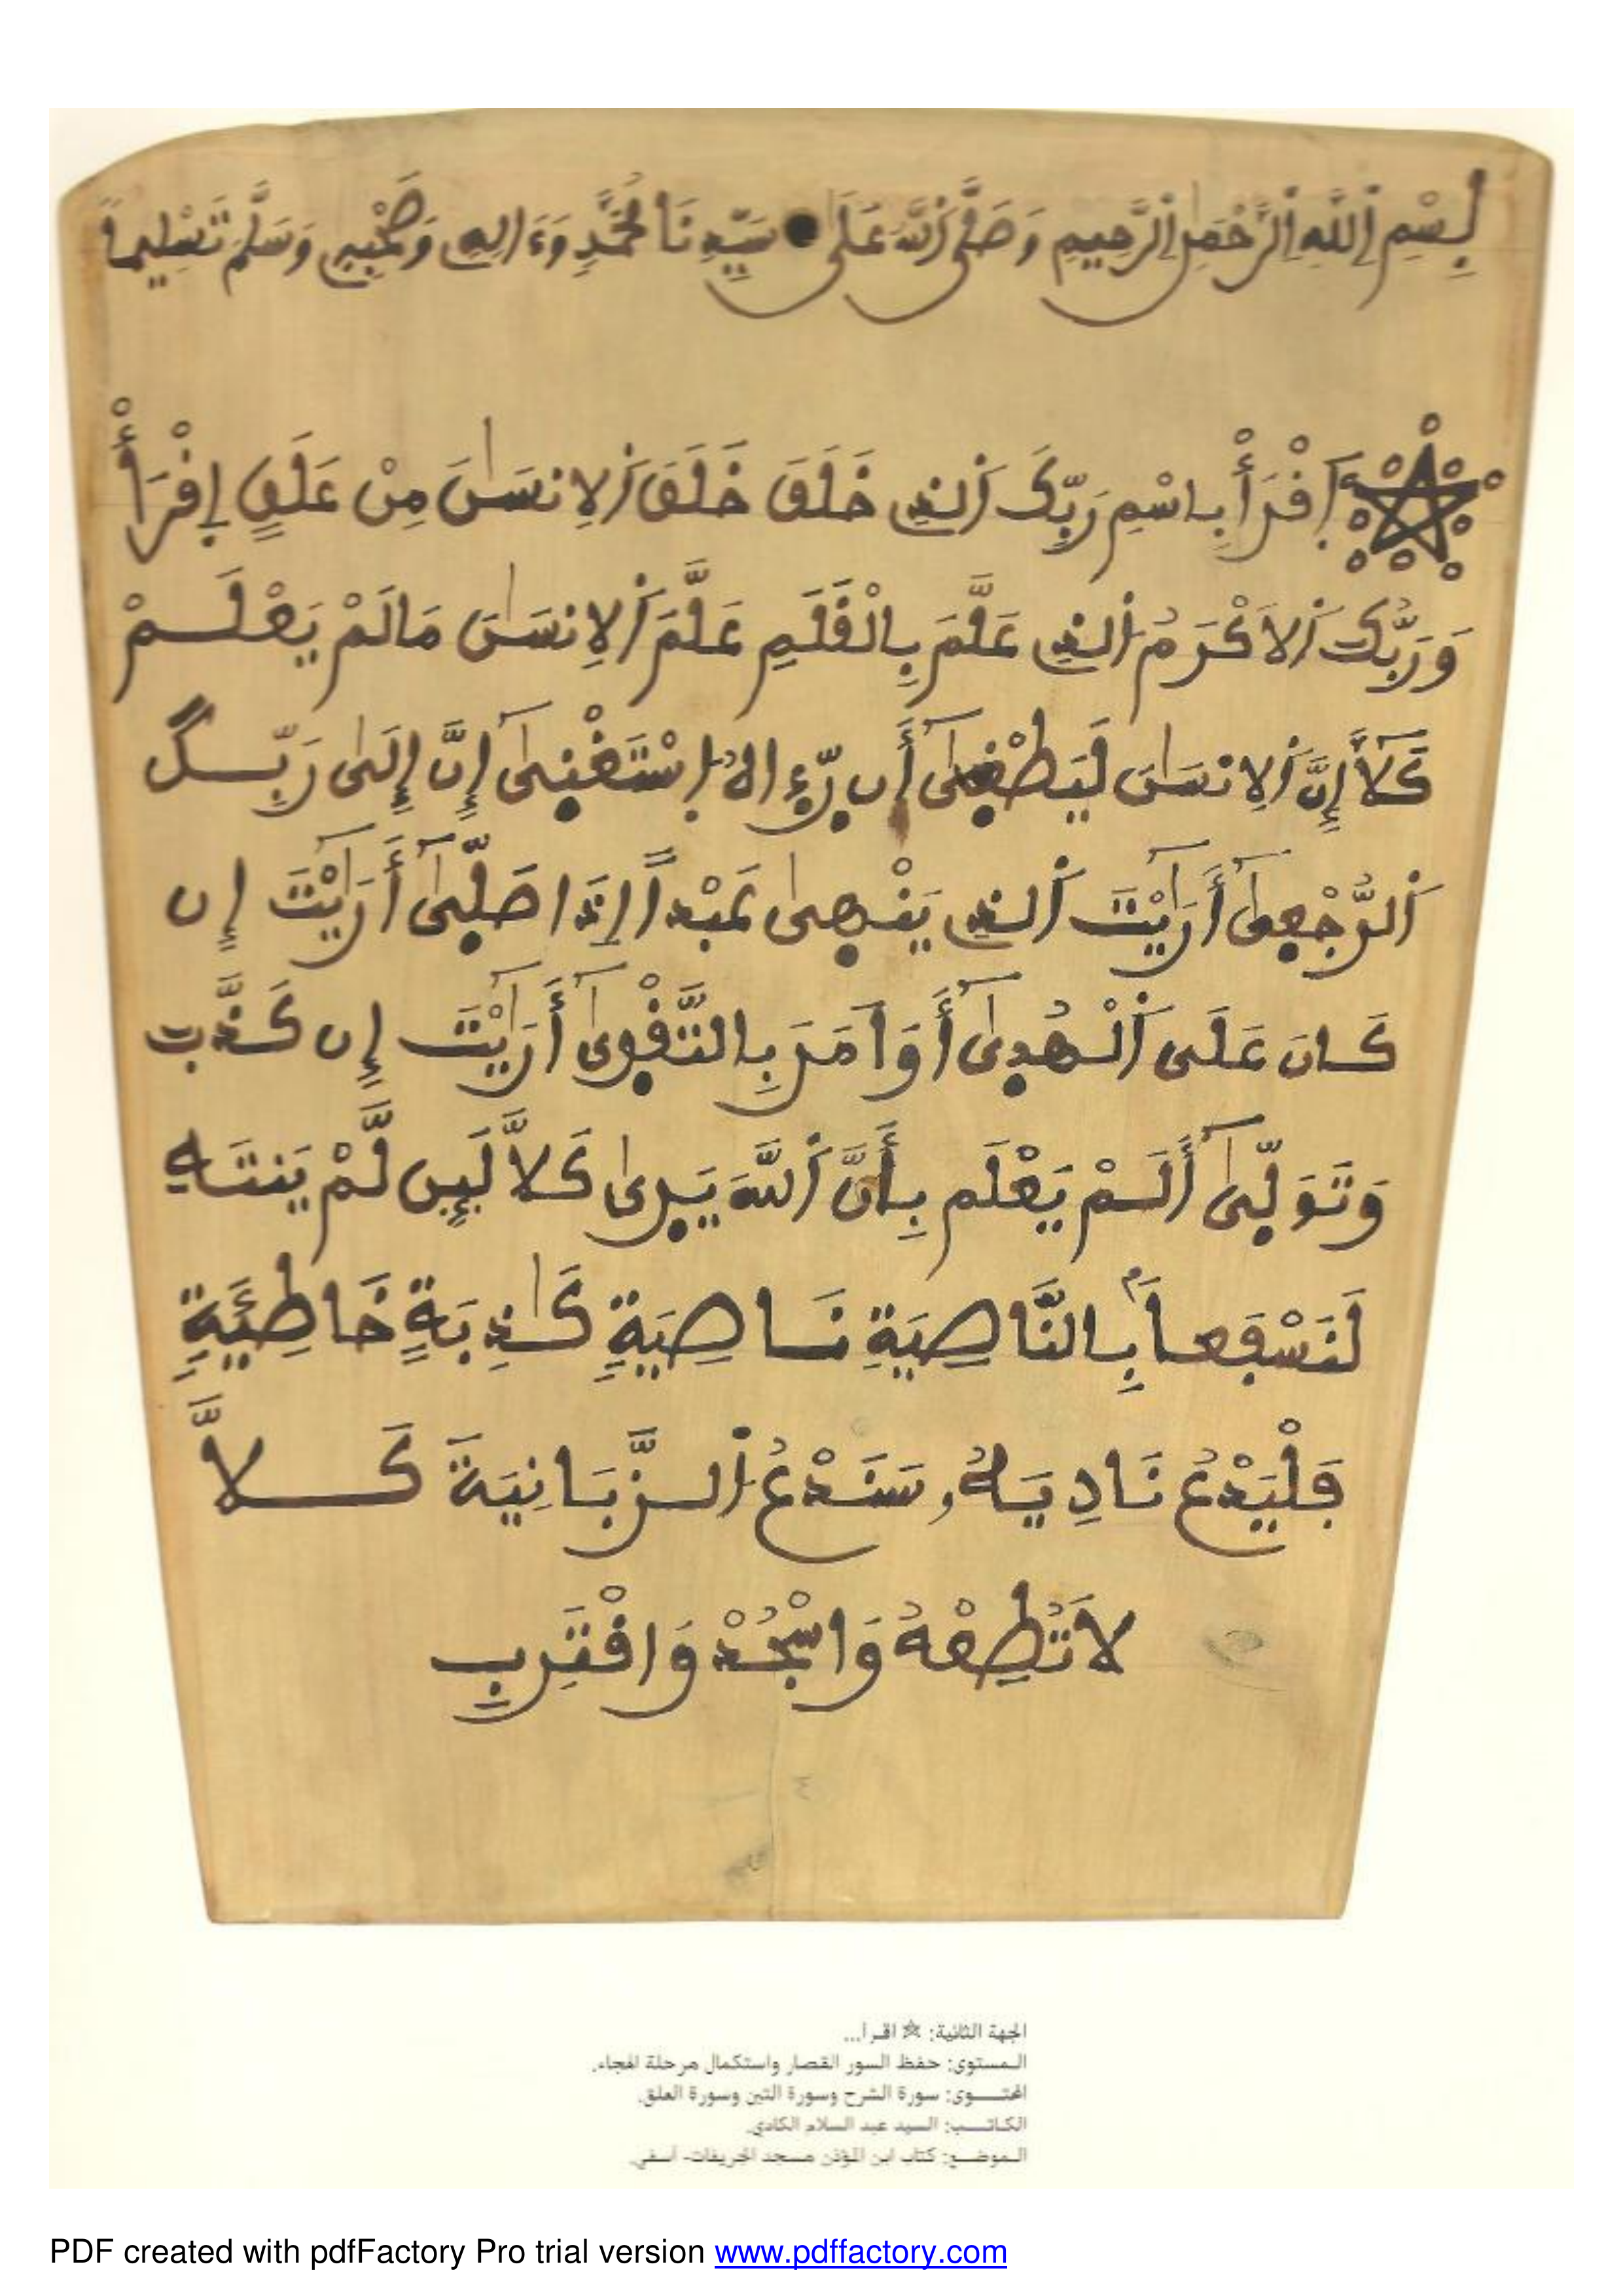 بِسْمِ اِ۬للَّهِ اِ۬لرَّحْمَٰنِ اِ۬لرَّحِيمِ وَصَلَّى اَ۬للَّهُ عَلَى سَيِّدِنَا مُحَمَّدٍ وَءَالِهِ وَصَحْبِهِ وَسَلَّمَ تَسْلِيماً
اَ۪قْرَأْ بِاسْمِ رَبِّكَ اَ۬لذِے خَلَقَ خَلَقَ اَ۬لِانسَٰنَ مِنْ عَلَقٍ اِقْرَأْ
وَرَبُّكَ اَ۬لَاكْرَمُ اُ۬لذِے عَلَّمَ بِالْقَلَمِ عَلَّمَ اَ۬لِانسَٰنَ مَا لَمْ يَعْلَمْ
كَلَّآ إِنَّ اَ۬لِانسَٰنَ لَيَطْغ۪ىٰٓ أَن رّ۪ء۪اهُ اُ۪سْتَغْن۪ىٰٓ إِنَّ إِلَىٰ رَبِّكَ
اَ۬لرُّجْع۪ىٰٓ أَرَآيْتَ اَ۬لذِے يَنْه۪ىٰ عَبْداً اِذَا صَلّ۪ىٰٓ أَرَآيْتَ إِن
كَانَ عَلَى اَ۬لْهُد۪ىٰٓ أَوَ اَمَرَ بِالتَّقْو۪ىٰٓ أَرَآيْتَ إِن كَذَّبَ
وَتَوَلّ۪ىٰٓ أَلَمْ يَعْلَم بِأَنَّ اَ۬للَّهَ يَر۪ىٰ كَلَّا لَئِن لَّمْ يَنتَهِ
لَنَسْفَعاَۢ بِالنَّاصِيَةِ نَاصِيَةٍ كَٰذِبَةٍ خَاطِئَةٍ
فَلْيَدْعُ نَادِيَهُۥ سَنَدْعُ اُ۬لزَّبَانِيَةَ كَلَّا
لَا تُطِعْهُ وَاسْجُدْ وَاقْتَرِب
الجهة الثانية: ☆ اقرأ...
المستوى: حفظ السور القصار واستكمال مرحلة الهجاء.
المحتوى: سورة الشرح وسورة التين وسورة العلق.
الكاتب: السيد عبد السلام الكادي.
الموضع: كتاب ابن المؤذن مسجد الخريفات- أسفي.
PDF created with pdfFactory Pro trial version www.pdffactory.com